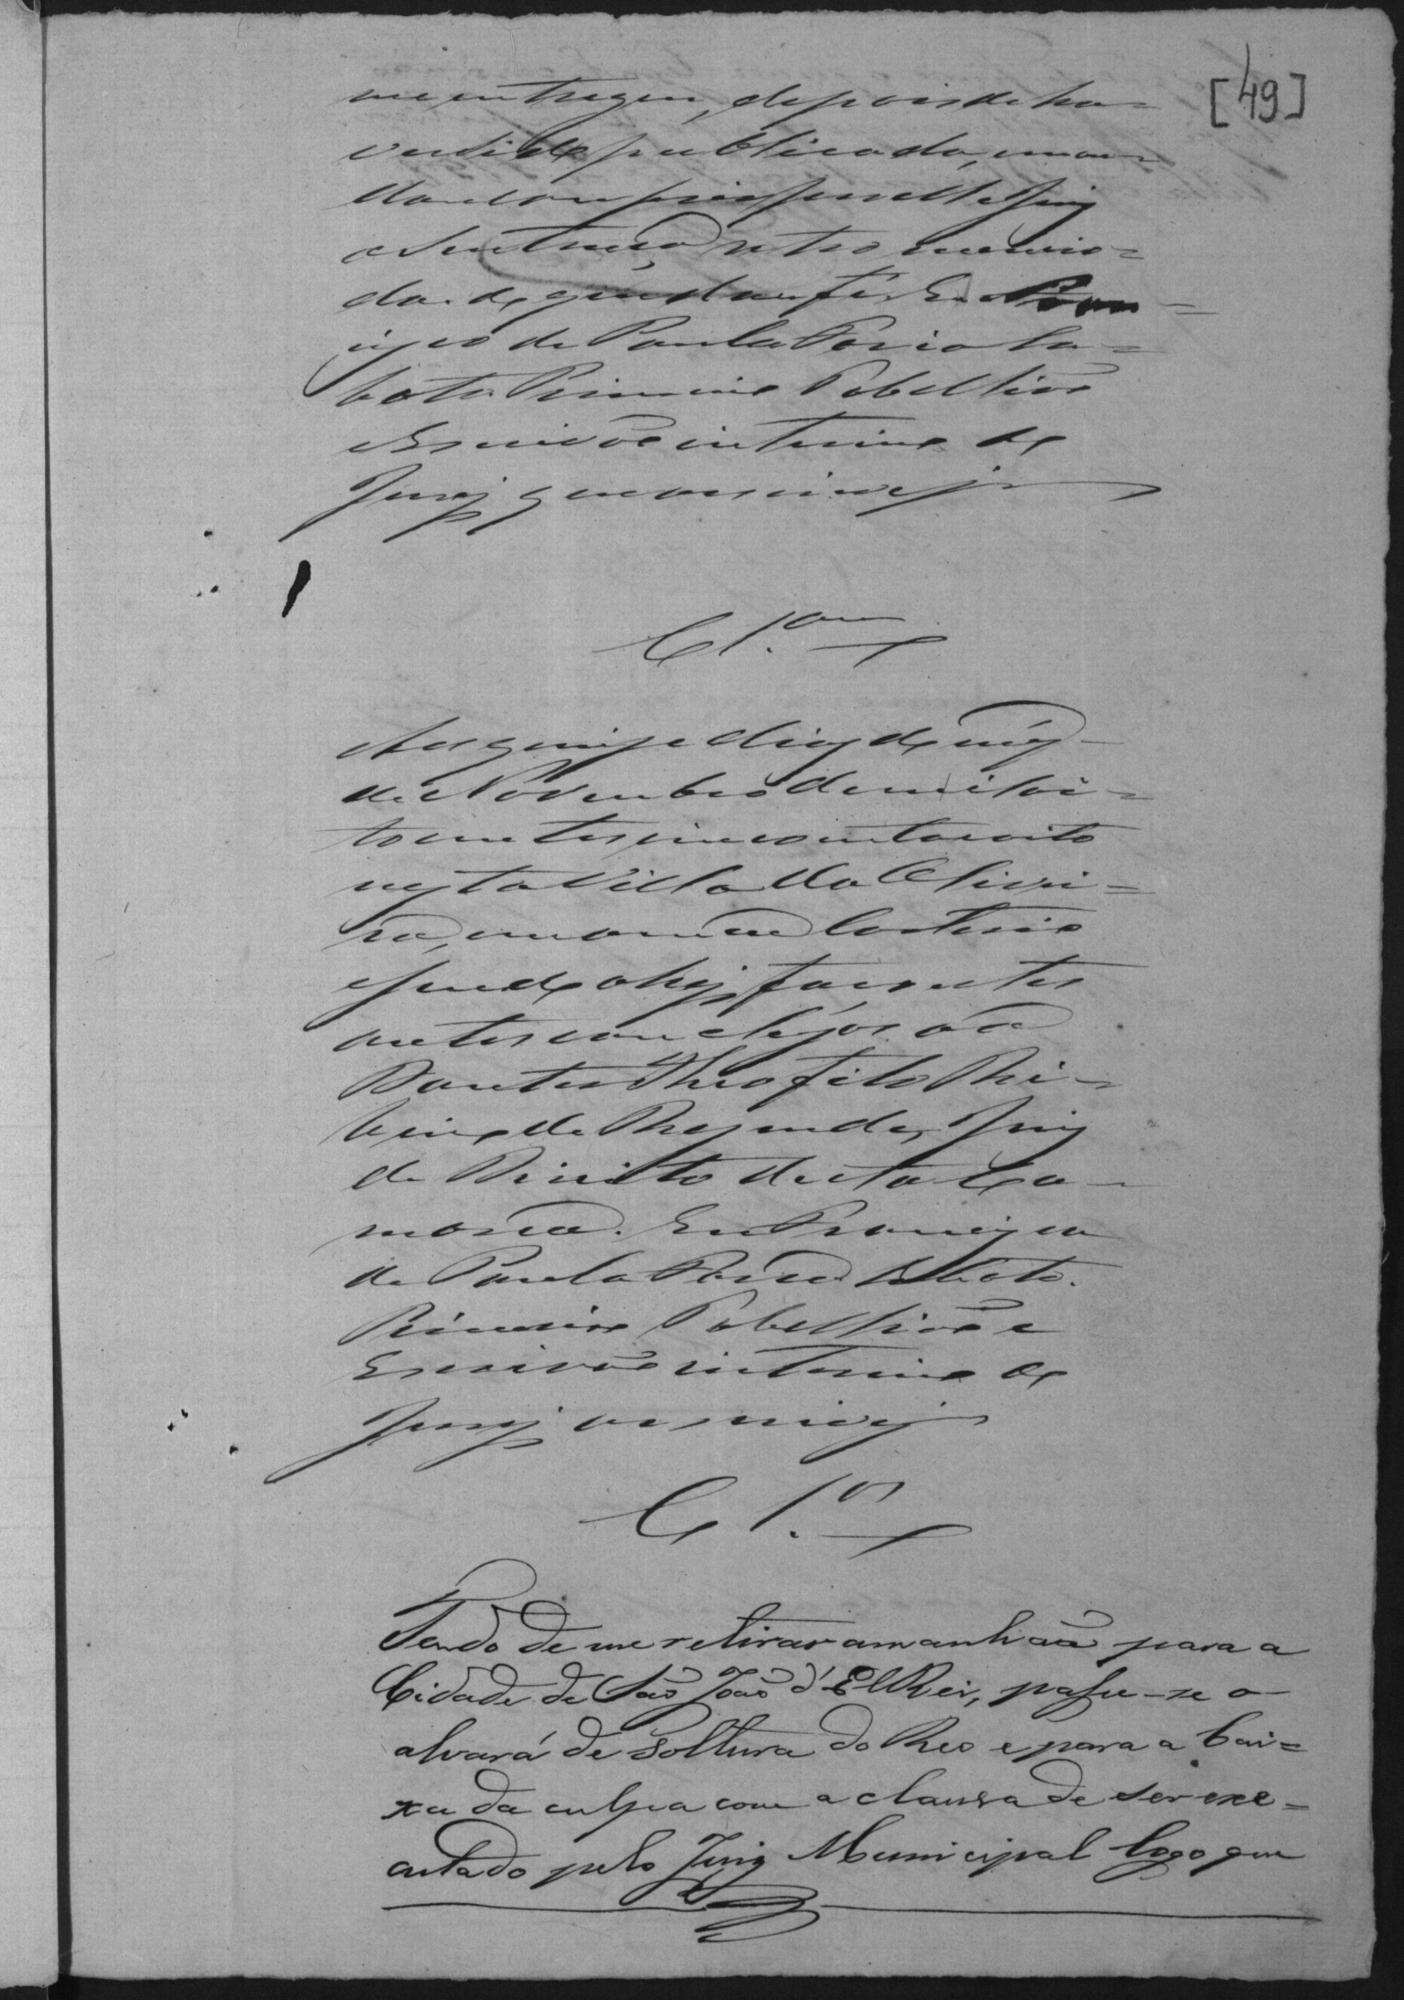 [49]
me entregou, depois de ha=
ver sido publicada, e man=
dando
a Sentença retro
da. de que dou fé. Eu Fran=
cisco de Paula
Primeiro Tabellião
e Escrivão interino do
Jury que escrevi
Cl.am
Aos quinze dias do mez
de Novembro de mil oi=
to centos cincoenta e oito
nesta Villa da Olivei=
ra, em meu Cartorio
e sendo ahi, faço estes
autos conclusos ao
Doutor Theofilo Ri=
beiro de Rezende, Juiz
de Direito desta Co=
marca. Eu Francisco
de Paula
Primeiro Tabellião e
Escrivão interino do
Jury o escrevi
Cl.os
Tendo de me retirar amanhãa para a
Cidade de São João d'El Rei, passe-se o
alvará de soltura do Reo e para a bai=
xa da culpa com a clausa de ser exe=
cutado pelo Juiz Municipal logo que